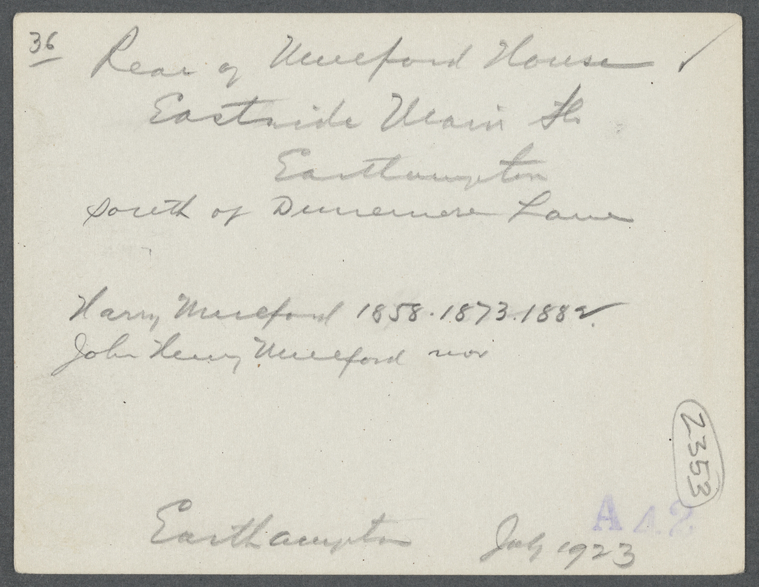 36
Rear of Mulford House ✓
Eastside Main St.
Easthampton
south of Dunemere Lane
Harry Mulford 1858 · 1873 · 1882
John Henry Mulford
2353
A42
Easthampton July 1923